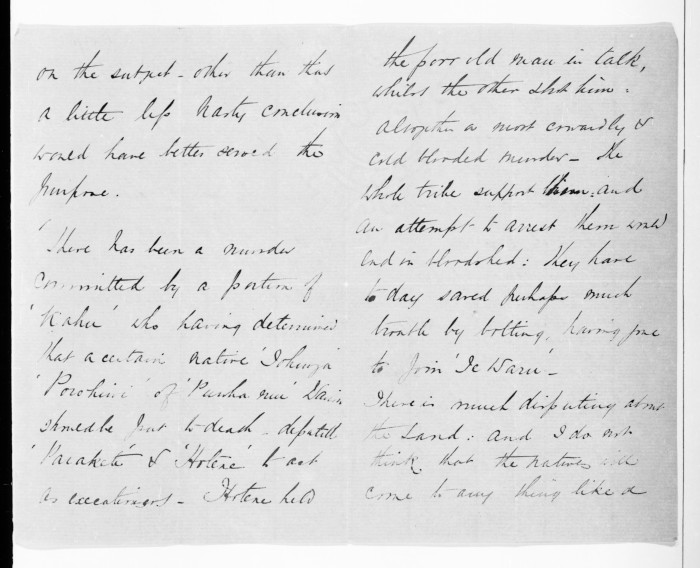 on the subject - other than that
a little less hasty conclusion
would have better served the
purpose.
There has been a murder
committed by a portion of
'Kahu' who having determined
that a certain native 'Tohunga'
'Porohiwi' of
should be put to death - deputed
& 'Hotene' to act
as executioners - Hotene held
the poor old man in talk,
whilst the other shot him:
altogether a most cowardly &
cold blooded murder - The
whole tribe support them: and
an attempt to arrest them would
end in bloodshed: They have
to day saved perhaps much
trouble by bolting, having gone
to join 'Te Waru' -
There is much disputing about
the Land: and I do not
think that the natives will
come to any thing like a